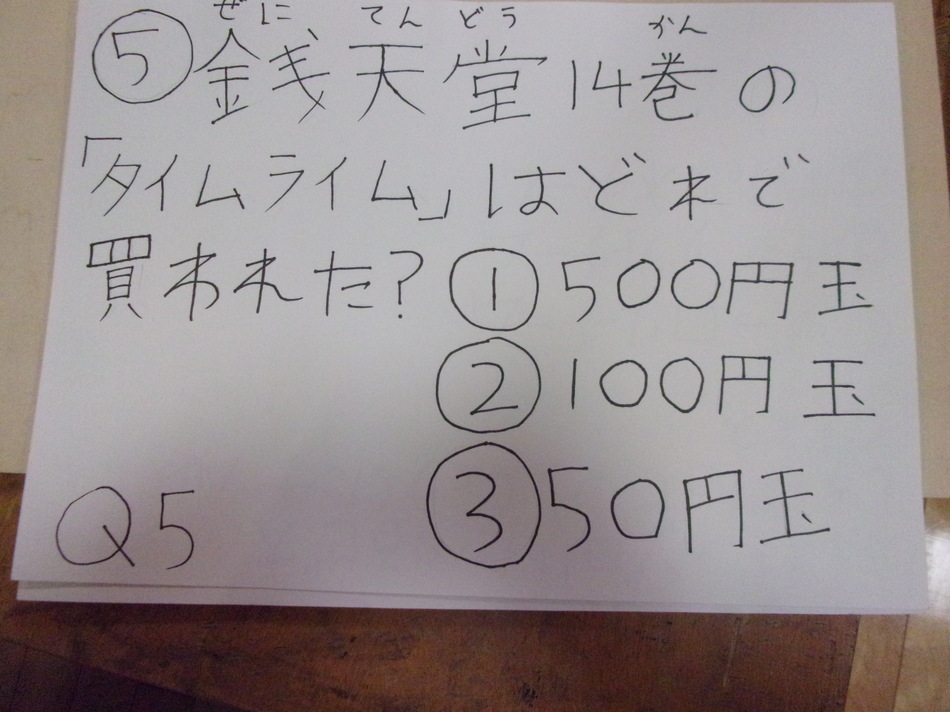 ぜに てんどう かん
⑤銭天堂14巻の
「タイムライム」はどれで
買われた？①500円玉
②100円玉
Q5 ③50円玉